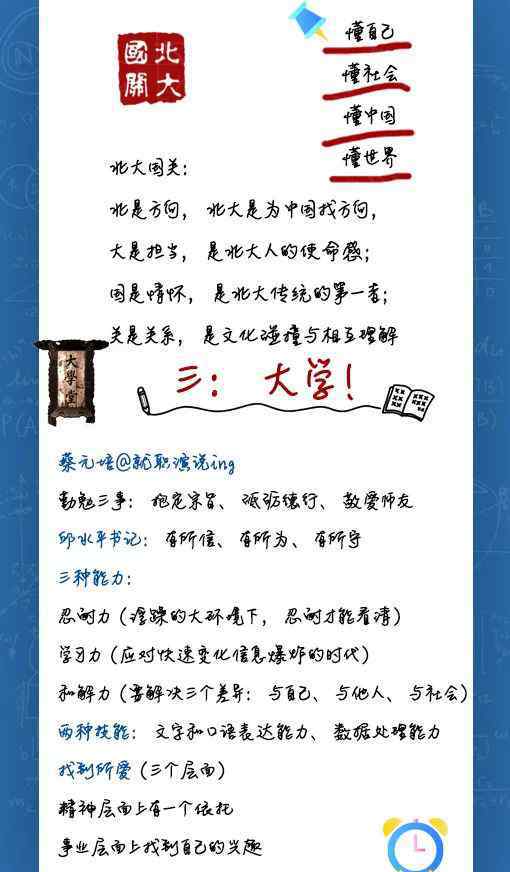 北大
國關
懂自己
懂社会
懂中国
懂世界
北大国关：
北是方向，北大是为中国找方向，
大是担当，是北大人的使命感；
国是情怀，是北大传统的第一害；
关是关系，是文化碰撞与相互理解
大學堂
三：大学！
蔡元培@就职演说ing
勤勉三事：抱定宗旨、砥砺德行、敬爱师友
邱水平书记：有所信、有所为、有所守
三种能力：
忍耐力（浮躁的大环境下，忍耐才能看清）
学习力（应对快速变化信息爆炸的时代）
和解力（要解决三个差异：与自己、与他人、与社会）
两种技能：文字和口语表达能力、数据处理能力
找到所爱（三个层面）
精神层面上有一个依托
事业层面上找到自己的兴趣